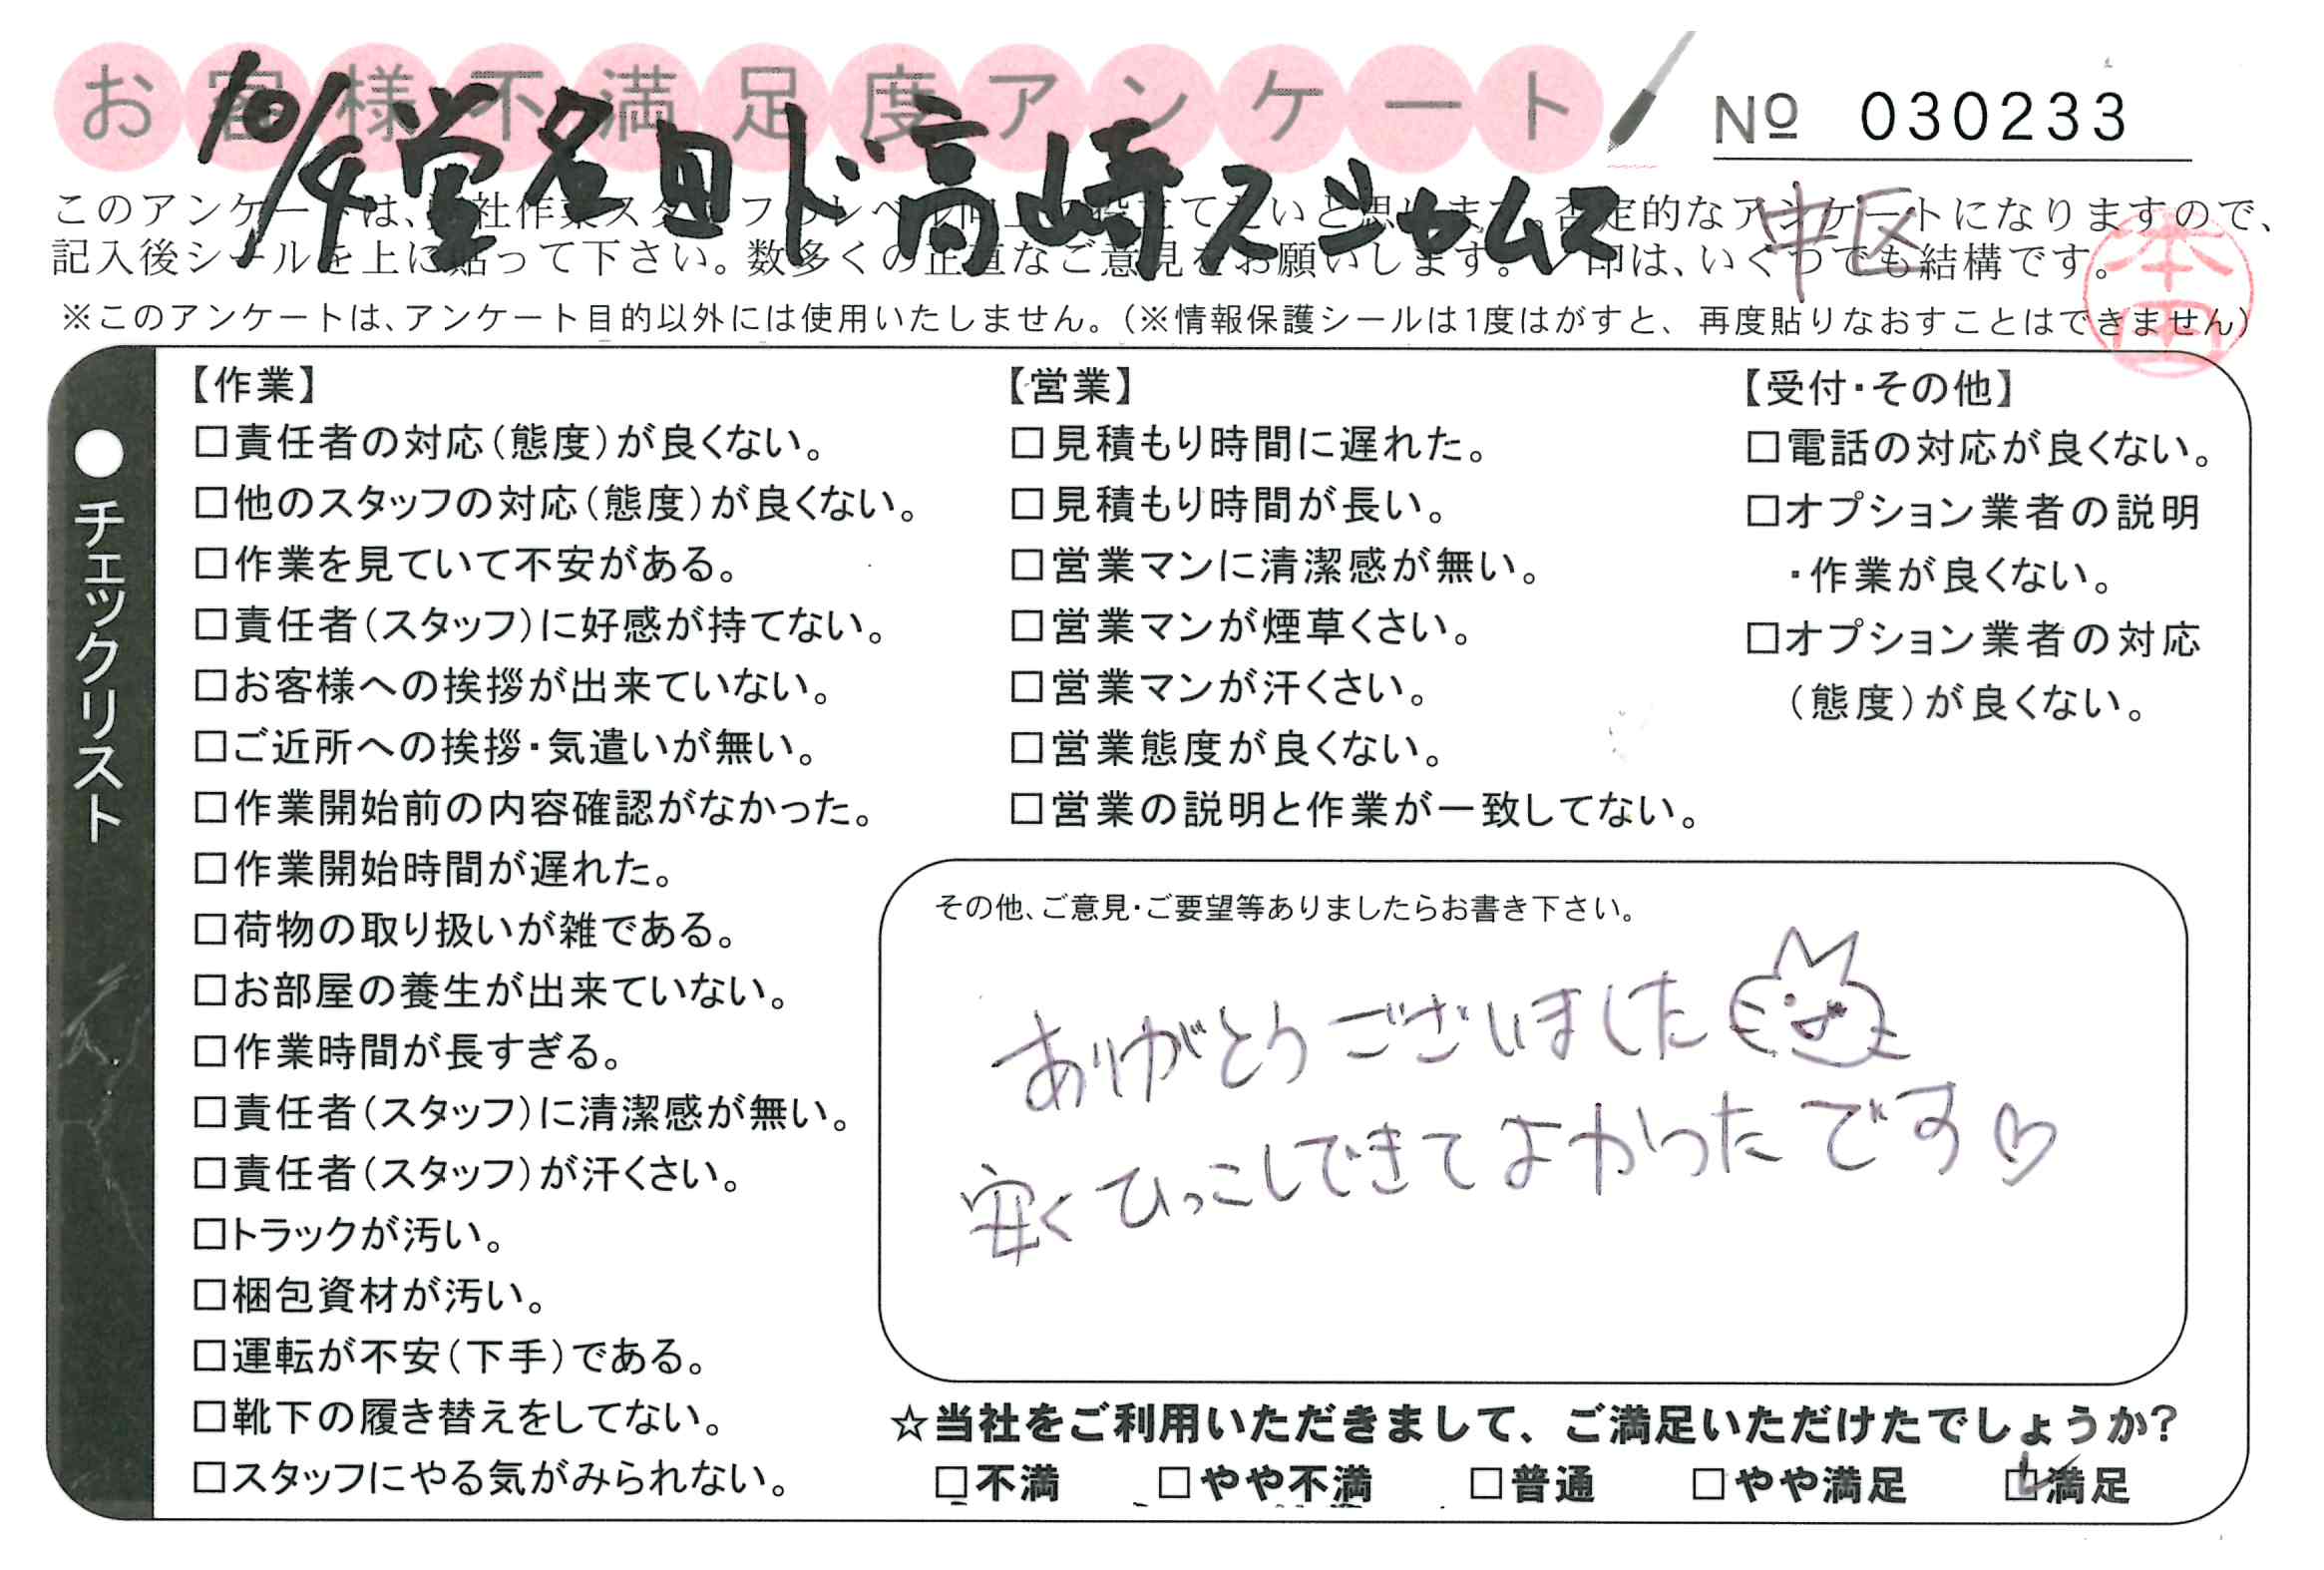 お客様不満足度アンケート
№ 030233
10/4 堂名田 ド 高崎 スジャムス
中区
本田
このアンケートは、社作業スタッフのレベル向上役立てたいと思います。否定的なアンケートになりますので、
記入後シールを上に貼って下さい。数多くの正直なご意見をお願いします。印は、いくつでも結構です。
※このアンケートは、アンケート目的以外には使用いたしません。（※情報保護シールは1度はがすと、再度貼りなおすことはできません）
●チェックリスト
【作業】
□責任者の対応（態度）が良くない。
□他のスタッフの対応（態度）が良くない。
□作業を見ていて不安がある。
□責任者（スタッフ）に好感が持てない。
□お客様への挨拶が出来ていない。
□ご近所への挨拶・気遣いが無い。
□作業開始前の内容確認がなかった。
□作業開始時間が遅れた。
□荷物の取り扱いが雑である。
□お部屋の養生が出来ていない。
□作業時間が長すぎる。
□責任者（スタッフ）に清潔感が無い。
□責任者（スタッフ）が汗くさい。
□トラックが汚い。
□梱包資材が汚い。
□運転が不安（下手）である。
□靴下の履き替えをしてない。
□スタッフにやる気がみられない。
【営業】
□見積もり時間に遅れた。
□見積もり時間が長い。
□営業マンに清潔感が無い。
□営業マンが煙草くさい。
□営業マンが汗くさい。
□営業態度が良くない。
□営業の説明と作業が一致してない。
【受付・その他】
□電話の対応が良くない。
□オプション業者の説明
・作業が良くない。
□オプション業者の対応
（態度）が良くない。
その他、ご意見・ご要望等ありましたらお書き下さい。
ありがとうございました
安くひっこしできてよかったです♡
☆当社をご利用いただきまして、ご満足いただけたでしょうか？
□不満 □やや不満 □普通 □やや満足 ☑満足